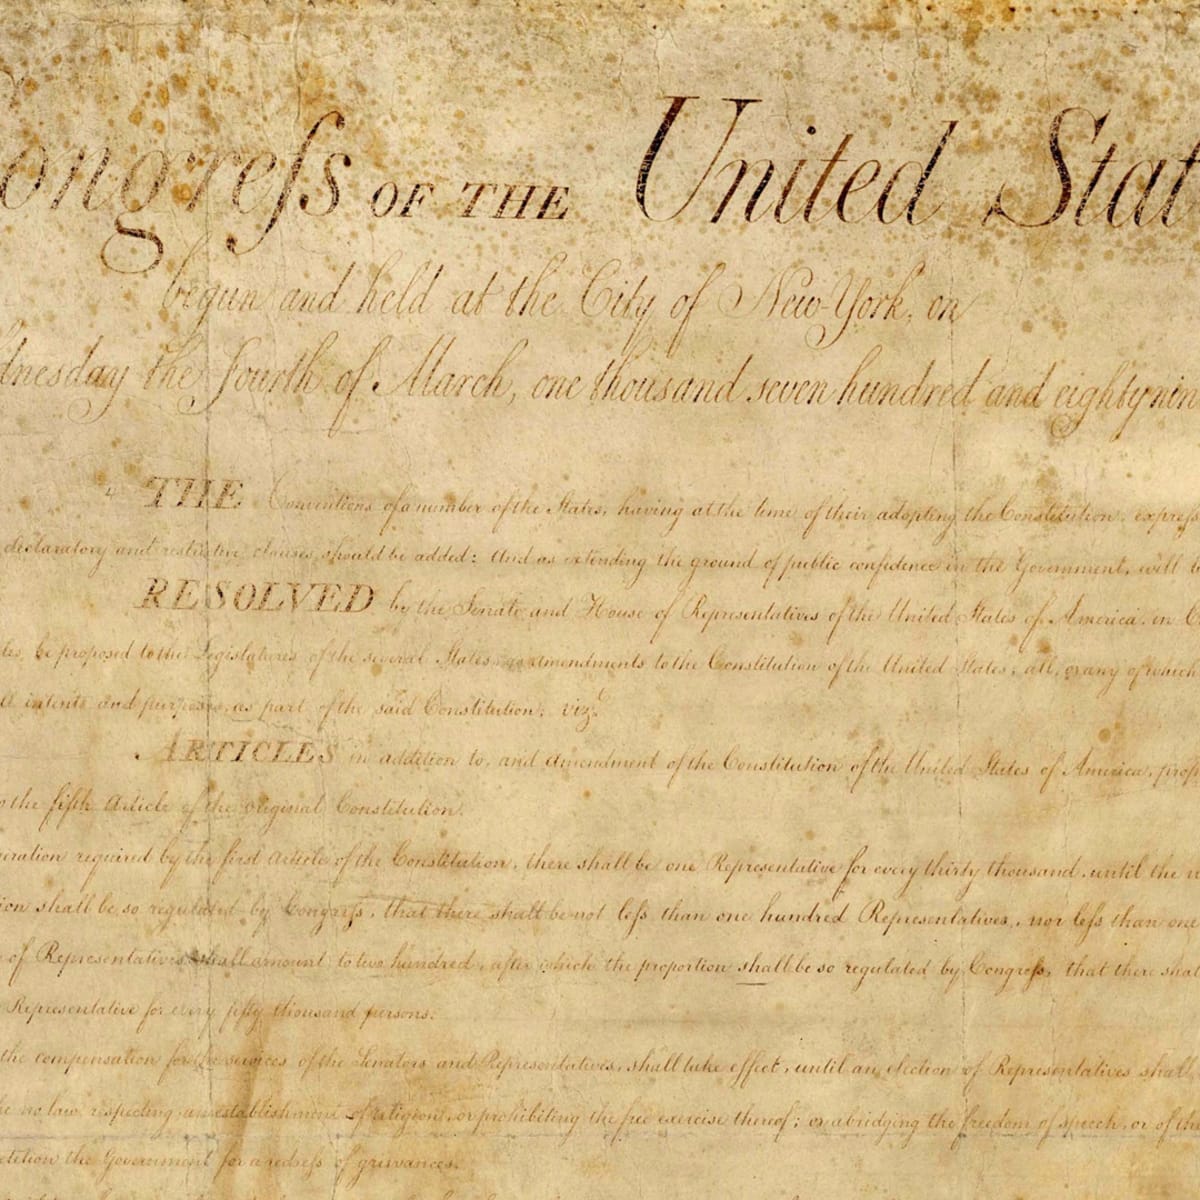 ongreſs OF THE United Stat
begun and held at the City of New-York, on
dnesday the Fourth of March, one thousand seven hundred and eighty nin
THE Conventions of a number of the States, having at the time of their adopting the Constitution, expreſs
declaratory and restrictive clauses should be added: And as extending the ground of public confidence in the Government, will b
RESOLVED by the Senate and House of Representatives of the United States of America, in C
les, be proposed to the Legislatures of the several States, as amendments to the Constitution of the United States, all, or any of which
ll intents and purposes, as part of the said Constitution; vizt
ARTICLES in addition to, and amendment of the Constitution of the United States of America, prop
o the fifth Article of the original Constitution.
meration required by the first Article of the Constitution, there shall be one Representative for every thirty thousand, until the n
ion shall be so regulated by Congreſs, that there shall be not leſs than one hundred Representatives, nor leſs than one
of Representatives shall amount to two hundred, after which the proportion shall be so regulated by Congreſs, that there shal
Representative for every fifty thousand persons.
the compensation for the services of the Senators and Representatives, shall take effect, until an election of Representatives shall
ke no law respecting an establishment of religion, or prohibiting the free exercise thereof; or abridging the freedom of speech, or of the
etition the Government for a redreſs of grievances.